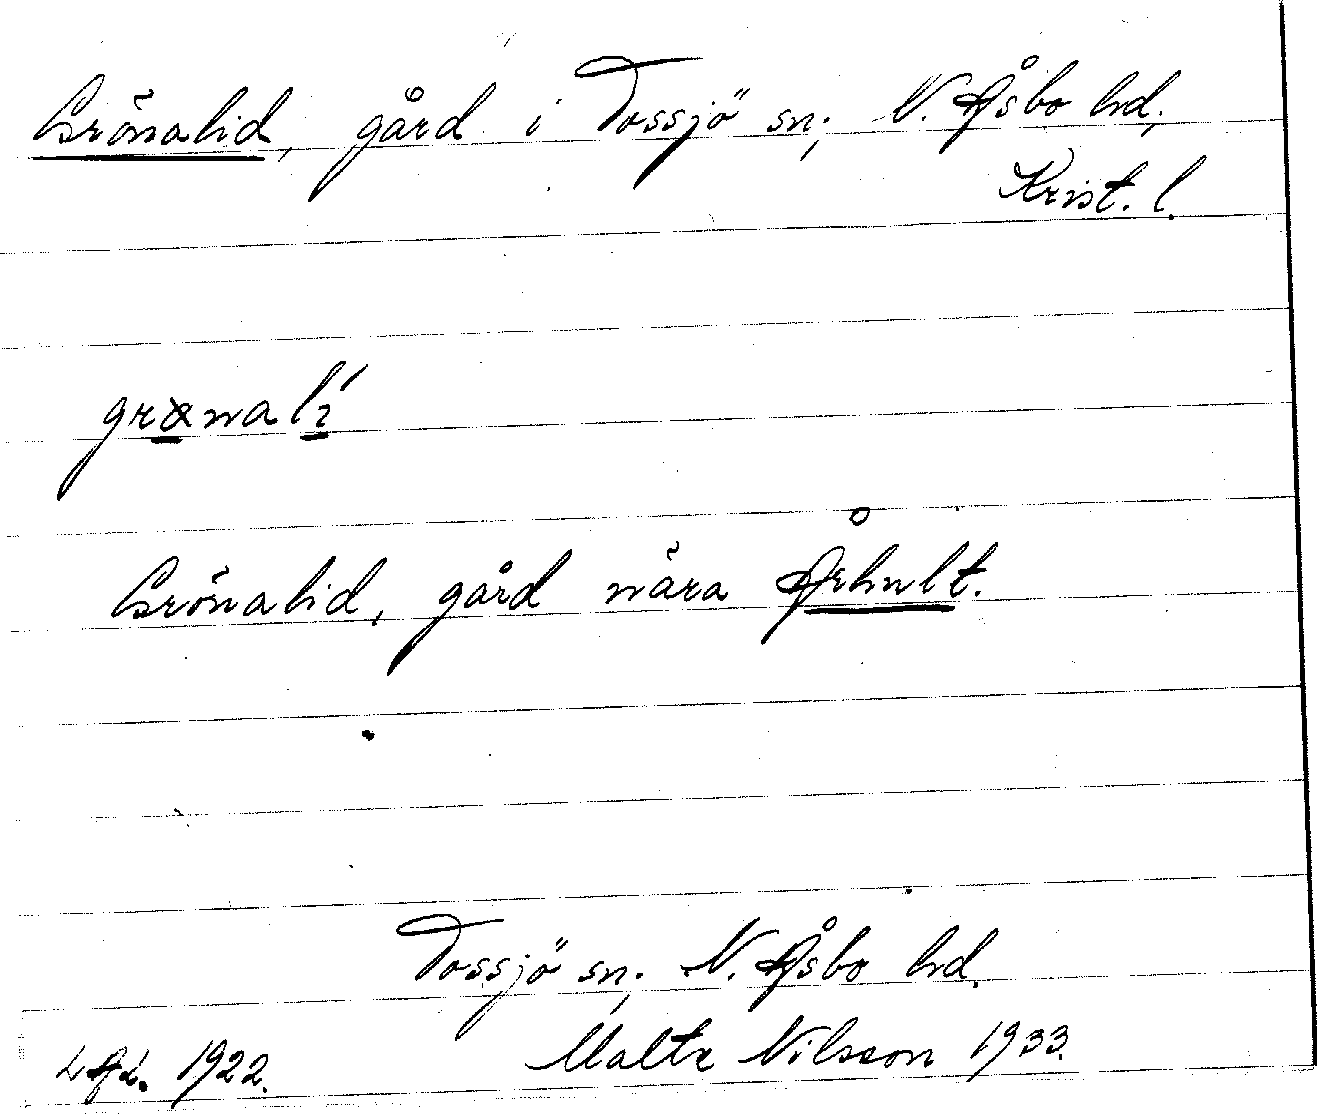 Grönalid, gård i Tossjö sn; N. Åsbo hd;
Krist. l.
grønalí
Grönalid, gård nära Århult.
Tossjö sn; N. Åsbo hd.
1922. Malte Nilsson 1933.